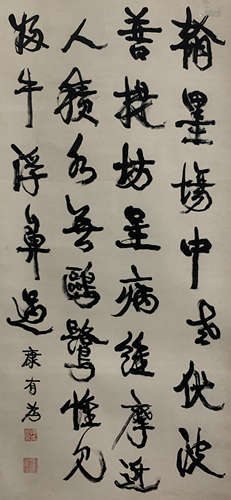 翰墨場中老伏波
菩提坊里病維摩近
人積水無鷗鷺惟見
歸牛浮鼻過
康有為